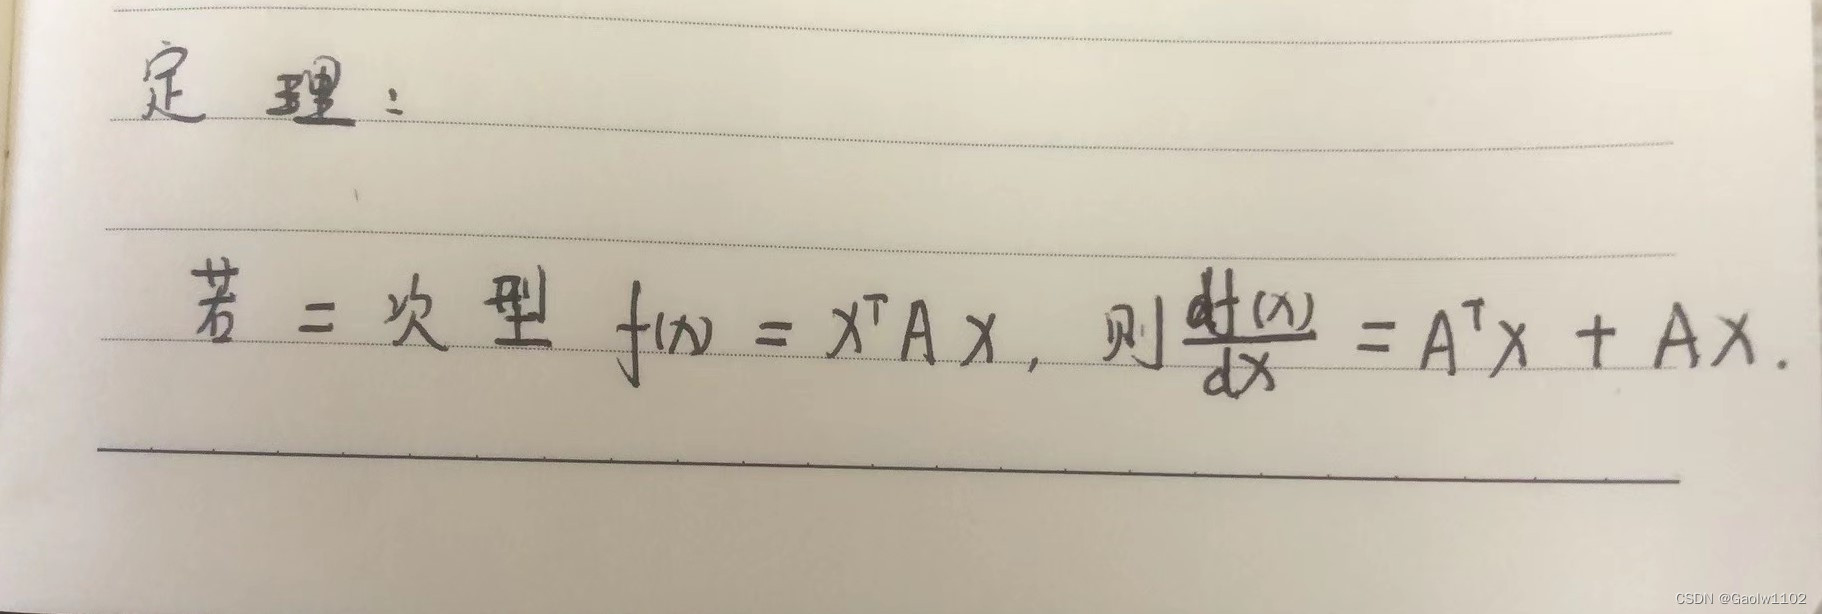 定理:
若二次型 f(x) = XᵀAX, 则 df(x)/dX = AᵀX + AX.
CSDN @Gaolw1102